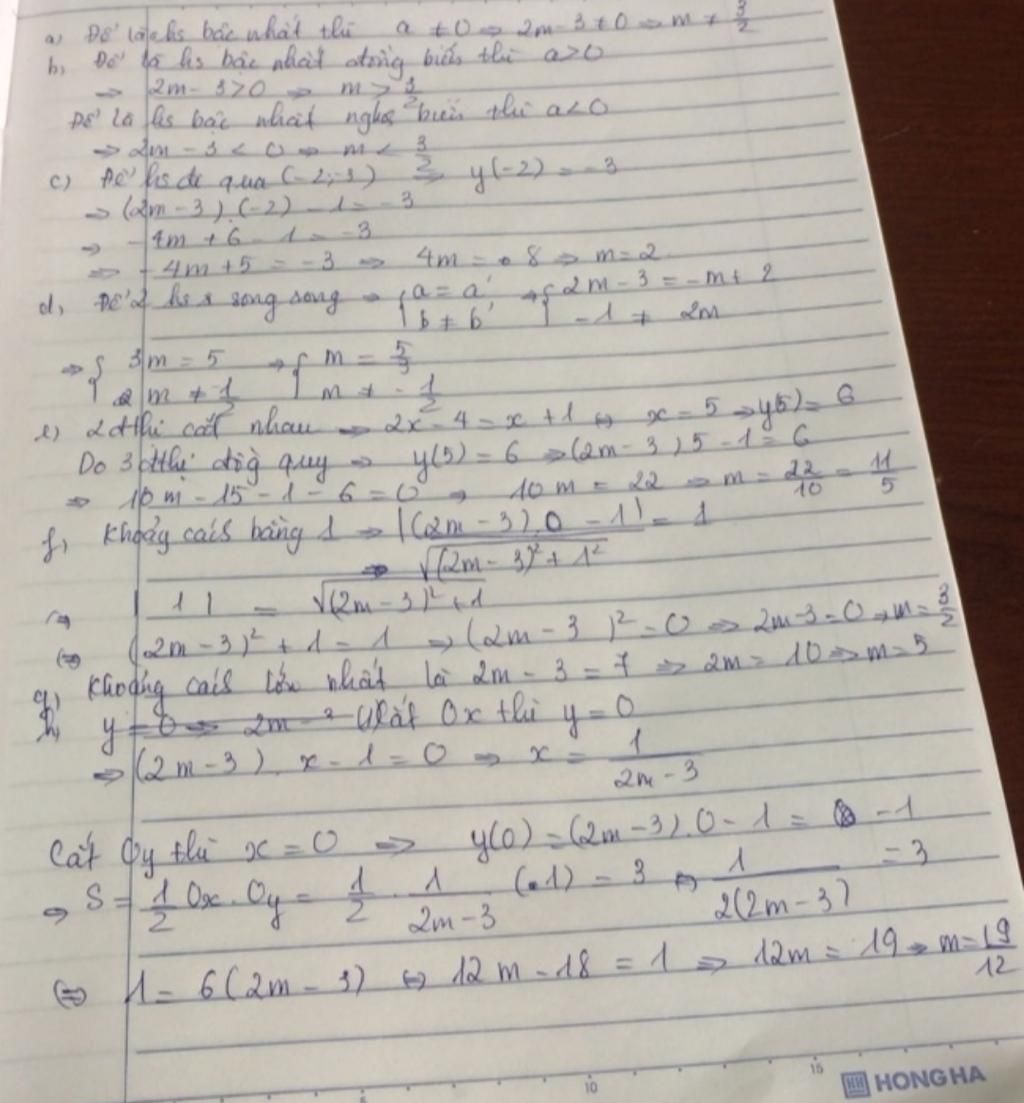 a) Để là hs bậc nhất thì a ≠ 0 => 2m-3 ≠ 0 => m ≠ 3/2
b, Để là hs bậc nhất đồng biến thì a>0
=> 2m-3>0 => m > 3/2
Để là hs bậc nhất nghịc biến thì a<0
=> 2m-3 < 0 => m < 3/2
c) Để hs đi qua (-2;-3) => y(-2) = -3
=> (2m-3)(-2) - 1 = -3
=> -4m + 6 - 1 = -3
=> -4m + 5 = -3 => 4m = 8 => m = 2
d, Để 2 hs song song => { a = a' => { 2m-3 = -m+2
b ≠ b' -1 ≠ 2m
=> { 3m = 5 => { m = 5/3
2m ≠ 1 m ≠ -1/2
e) 2 đthị cắt nhau => 2x-4 = x+1 <=> x = 5 => y(5) = 6
Do 3 đthị đồg quy => y(5) = 6 => (2m-3)5-1 = 6
=> 10m-15-1-6 = 0 => 10m = 22 => m = 22/10 = 11/5
f, Khoảg cách bằng 1 => |(2m-3).0-1| / √((2m-3)²+1²) = 1
=> |1| = √((2m-3)²+1)
<=> (2m-3)²+1 = 1 => (2m-3)² = 0 => 2m-3 = 0 => m = 3/2
g) Khoảng cách lớn nhất là 2m-3 = 7 => 2m = 10 => m = 5
h, y = 0 => 2m- Cắt Ox thì y = 0
=> (2m-3).x-1 = 0 => x = 1/(2m-3)
Cắt Oy thì x = 0 => y(0) = (2m-3).0-1 = -1
=> S = 1/2 Ox.Oy = 1/2 . 1/(2m-3) (.1) = 3 <=> 1/(2(2m-3)) = 3
<=> 1 = 6(2m-3) <=> 12m-18 = 1 => 12m = 19 => m = 19/12
10 15
HH HONG HA